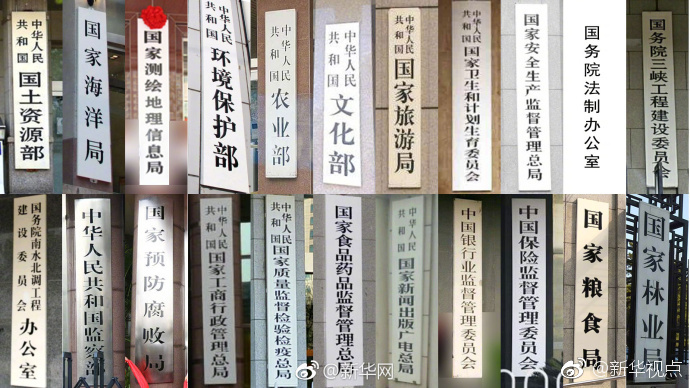 中华人民
共和国
国土资源部
国家海洋局
国家测绘地理信息局
中华人民
共和国
环境保护部
中华人民
共和国
农业部
中华人民
共和国
文化部
中华人民
共和国
国家旅游局
中华人民
共和国
国家卫生和计划生育委员会
国家安全生产监督管理总局
国务院法制办公室
国务院三峡工程建设委员会
国务院南水北调工程
建设委员会
办公室
中华人民共和国监察部
国家预防腐败局
中华人民
共和国
国家工商行政管理总局
中华人民
共和国
国家质量监督检验检疫总局
国家食品药品监督管理总局
中华人民
共和国
国家新闻出版广电总局
中国银行业监督管理委员会
中国保险监督管理委员会
国家粮食局
国家林业局
@新华网
@新华视点